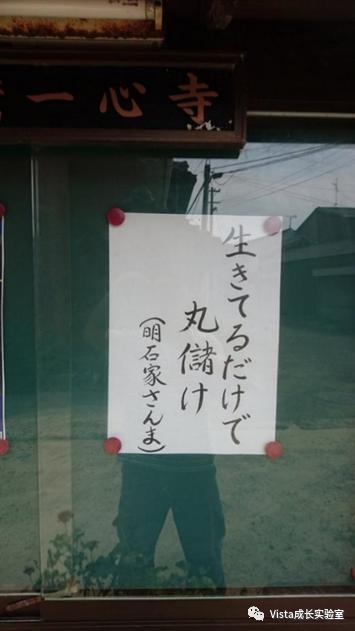 一心寺
生きてるだけで
丸儲け
(明石家さんま)
Vista成长实验室